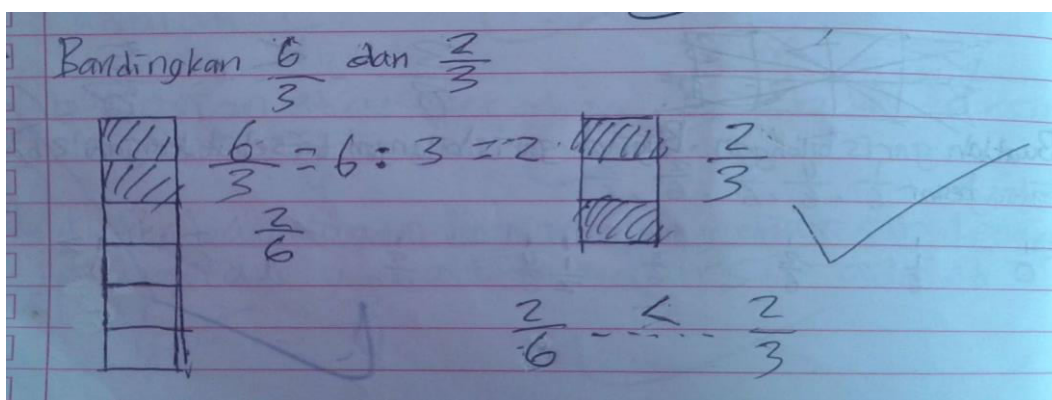 Bandingkan 6/3 dan 2/3
6/3 = 6 : 3 = 2
2/3
2/6
2/6 ---<--- 2/3